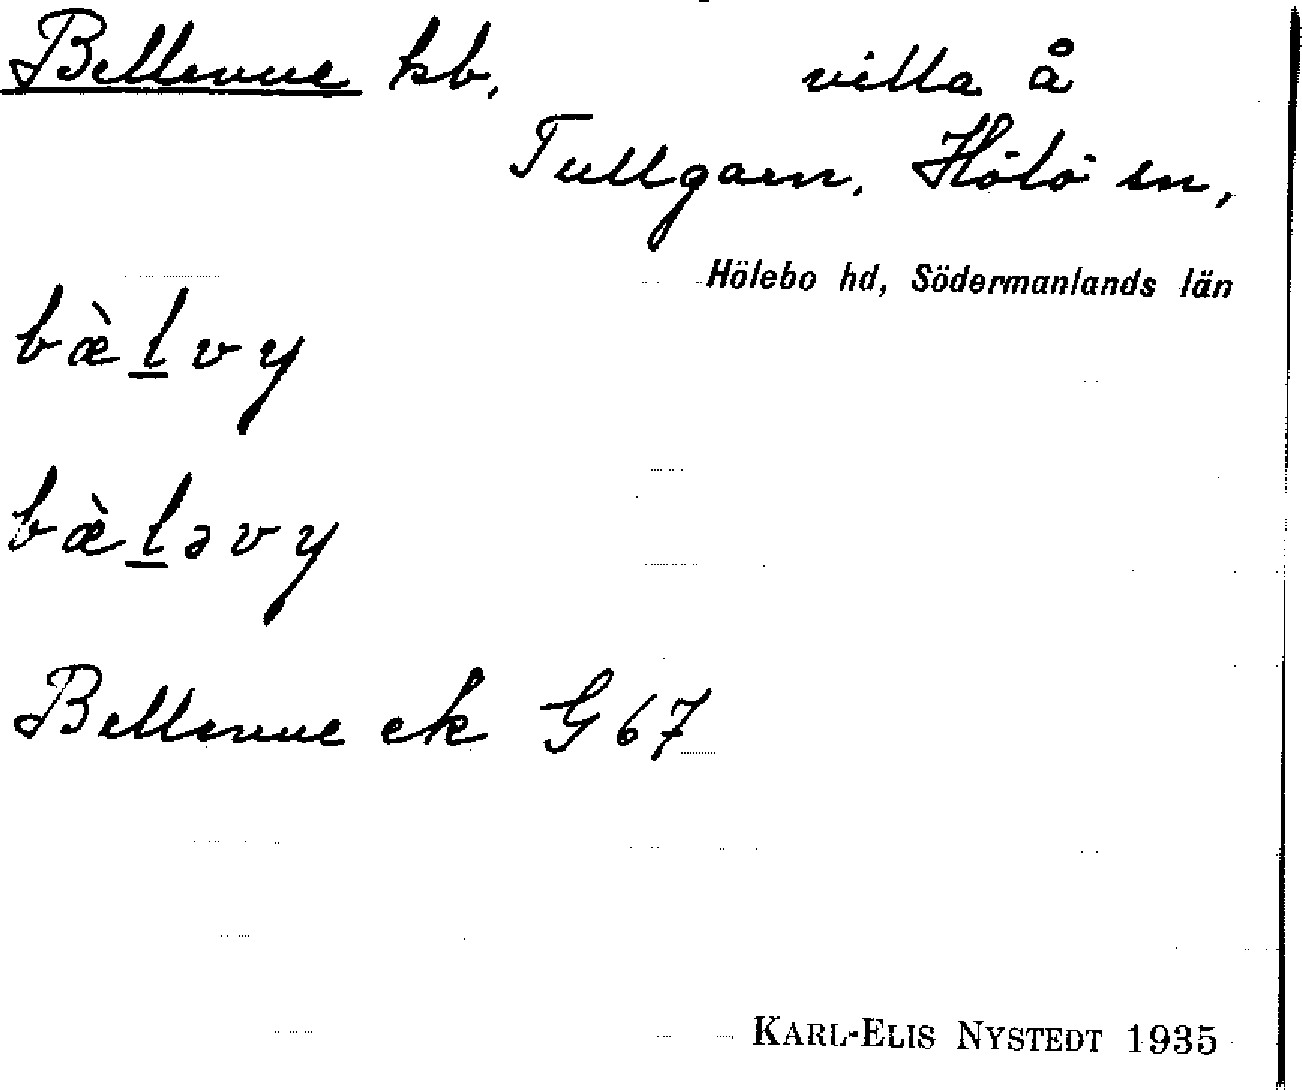 Bellevue hb, villa å
Tullgarn, Hölö sn,
Hölebo hd, Södermanlands län
bæ̀l̲vy
bæ̀l̲əvy
Bellevue ek G 67
KARL-ELIS NYSTEDT 1935